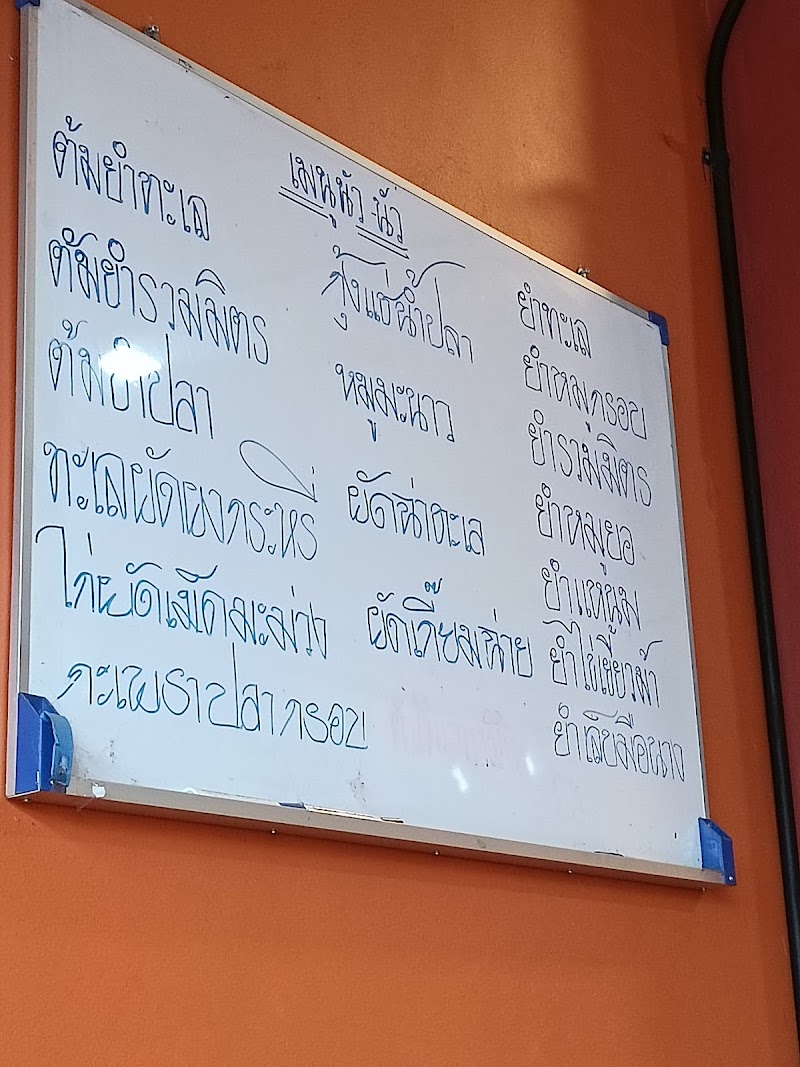 เมนูนัว นัว
ต้มยำทะเล
ต้มยำรวมมิตร
ต้มยำปลา
ทะเลผัดผงกระหรี่
ไก่ผัดเม็ดมะม่วง
กะเพราปลากรอบ
กุ้งแช่น้ำปลา
หมูมะนาว
ผัดฉ่าทะเล
ผัดเกี๊ยมฉ่าย
ยำทะเล
ยำหมูกรอบ
ยำรวมมิตร
ยำหมูยอ
ยำแหนม
ยำไข่เยี่ยวม้า
ยำเล็บมือนาง